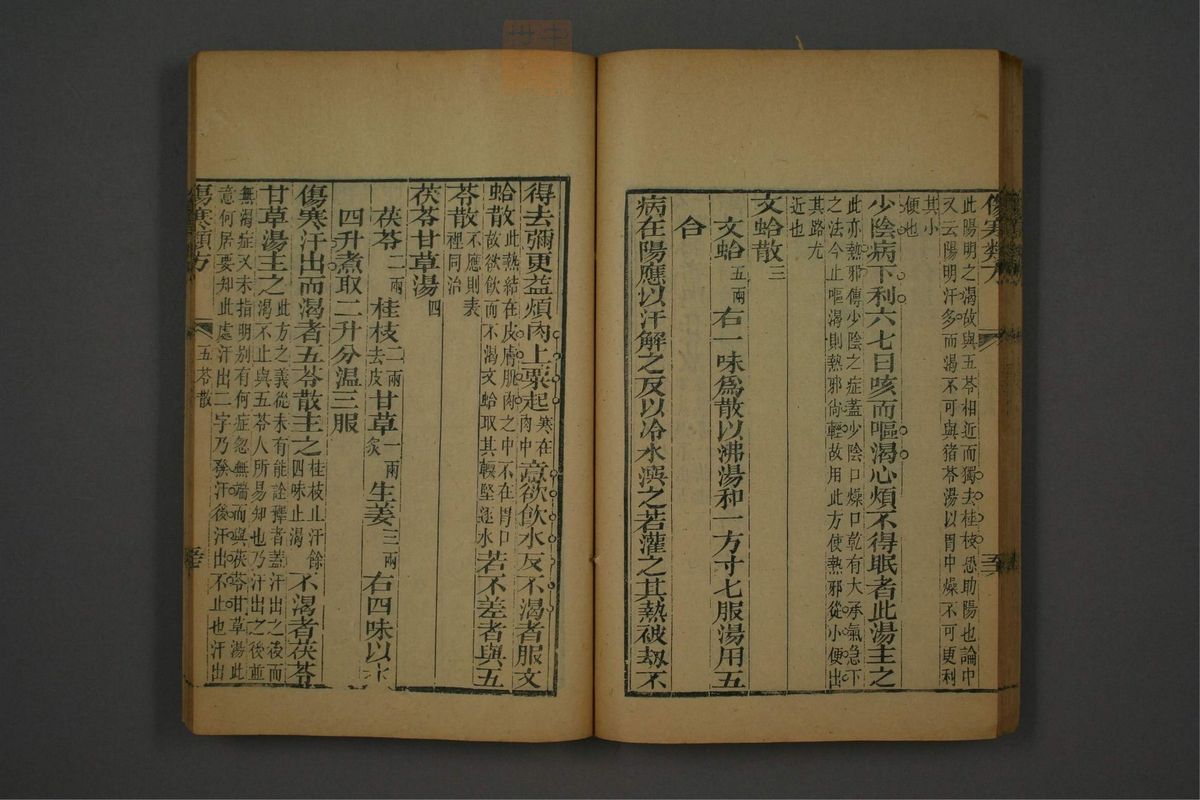 此陽明之渴故與五苓相近而獨去桂枝恐助陽也論中
又云陽明汗多而渴不可與猪苓湯以胃中燥不可更利
其小
便也
少陰病下利六七日咳而嘔渴心煩不得眠者此湯主之
此亦熱邪傳少陰之症蓋少陰口燥口乾有大承氣急下
之法今止嘔渴則熱邪尚輕故用此方使熱邪從小便出
其路尤
近也
文蛤散三
文蛤五兩 右一味為散以沸湯和一方寸匕服湯用五
合
病在陽應以汗解之反以冷水潠之若灌之其熱被劫不
得去彌更益煩肉上粟起寒在肉中意欲飲水反不渴者服文
蛤散此熱結在皮膚肌肉之中不在胃口故欲飲而不渴文蛤取其輭堅逐水若不差者與五
苓散不應則表裡同治
茯苓甘草湯四
茯苓二兩 桂枝二兩去皮 甘草一兩炙 生姜三兩 右四味以水
四升煮取二升分温三服
傷寒汗出而渴者五苓散主之桂枝止汗餘四味止渴不渴者茯苓
甘草湯主之此方之義從未有能詮釋者蓋汗出之後而渴不止與五苓人所易知也乃汗出之後並
無渴症又未指明别有何症忽無端而與茯苓甘草湯此
意何居要知此處汗出二字乃發汗後汗出不止也汗出
傷寒類方
五苓散